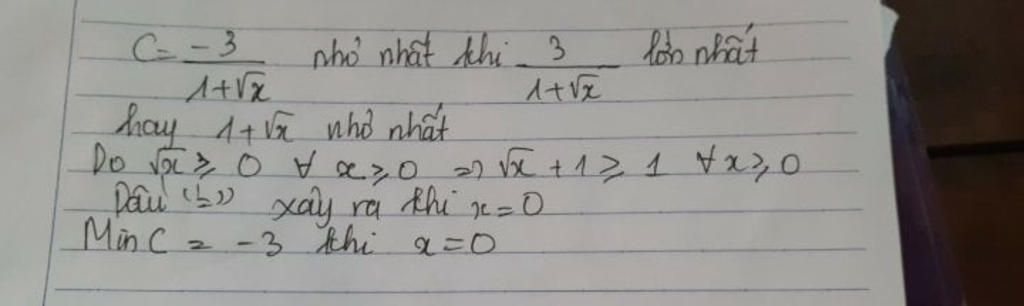 C = -3/(1+√x) nhỏ nhất khi 3/(1+√x) lớn nhất
hay 1+√x nhỏ nhất
Do √x ≥ 0 ∀ x ≥ 0 => √x + 1 ≥ 1 ∀x ≥ 0
Dấu "=" xảy ra khi x=0
Min C = -3 khi x=0